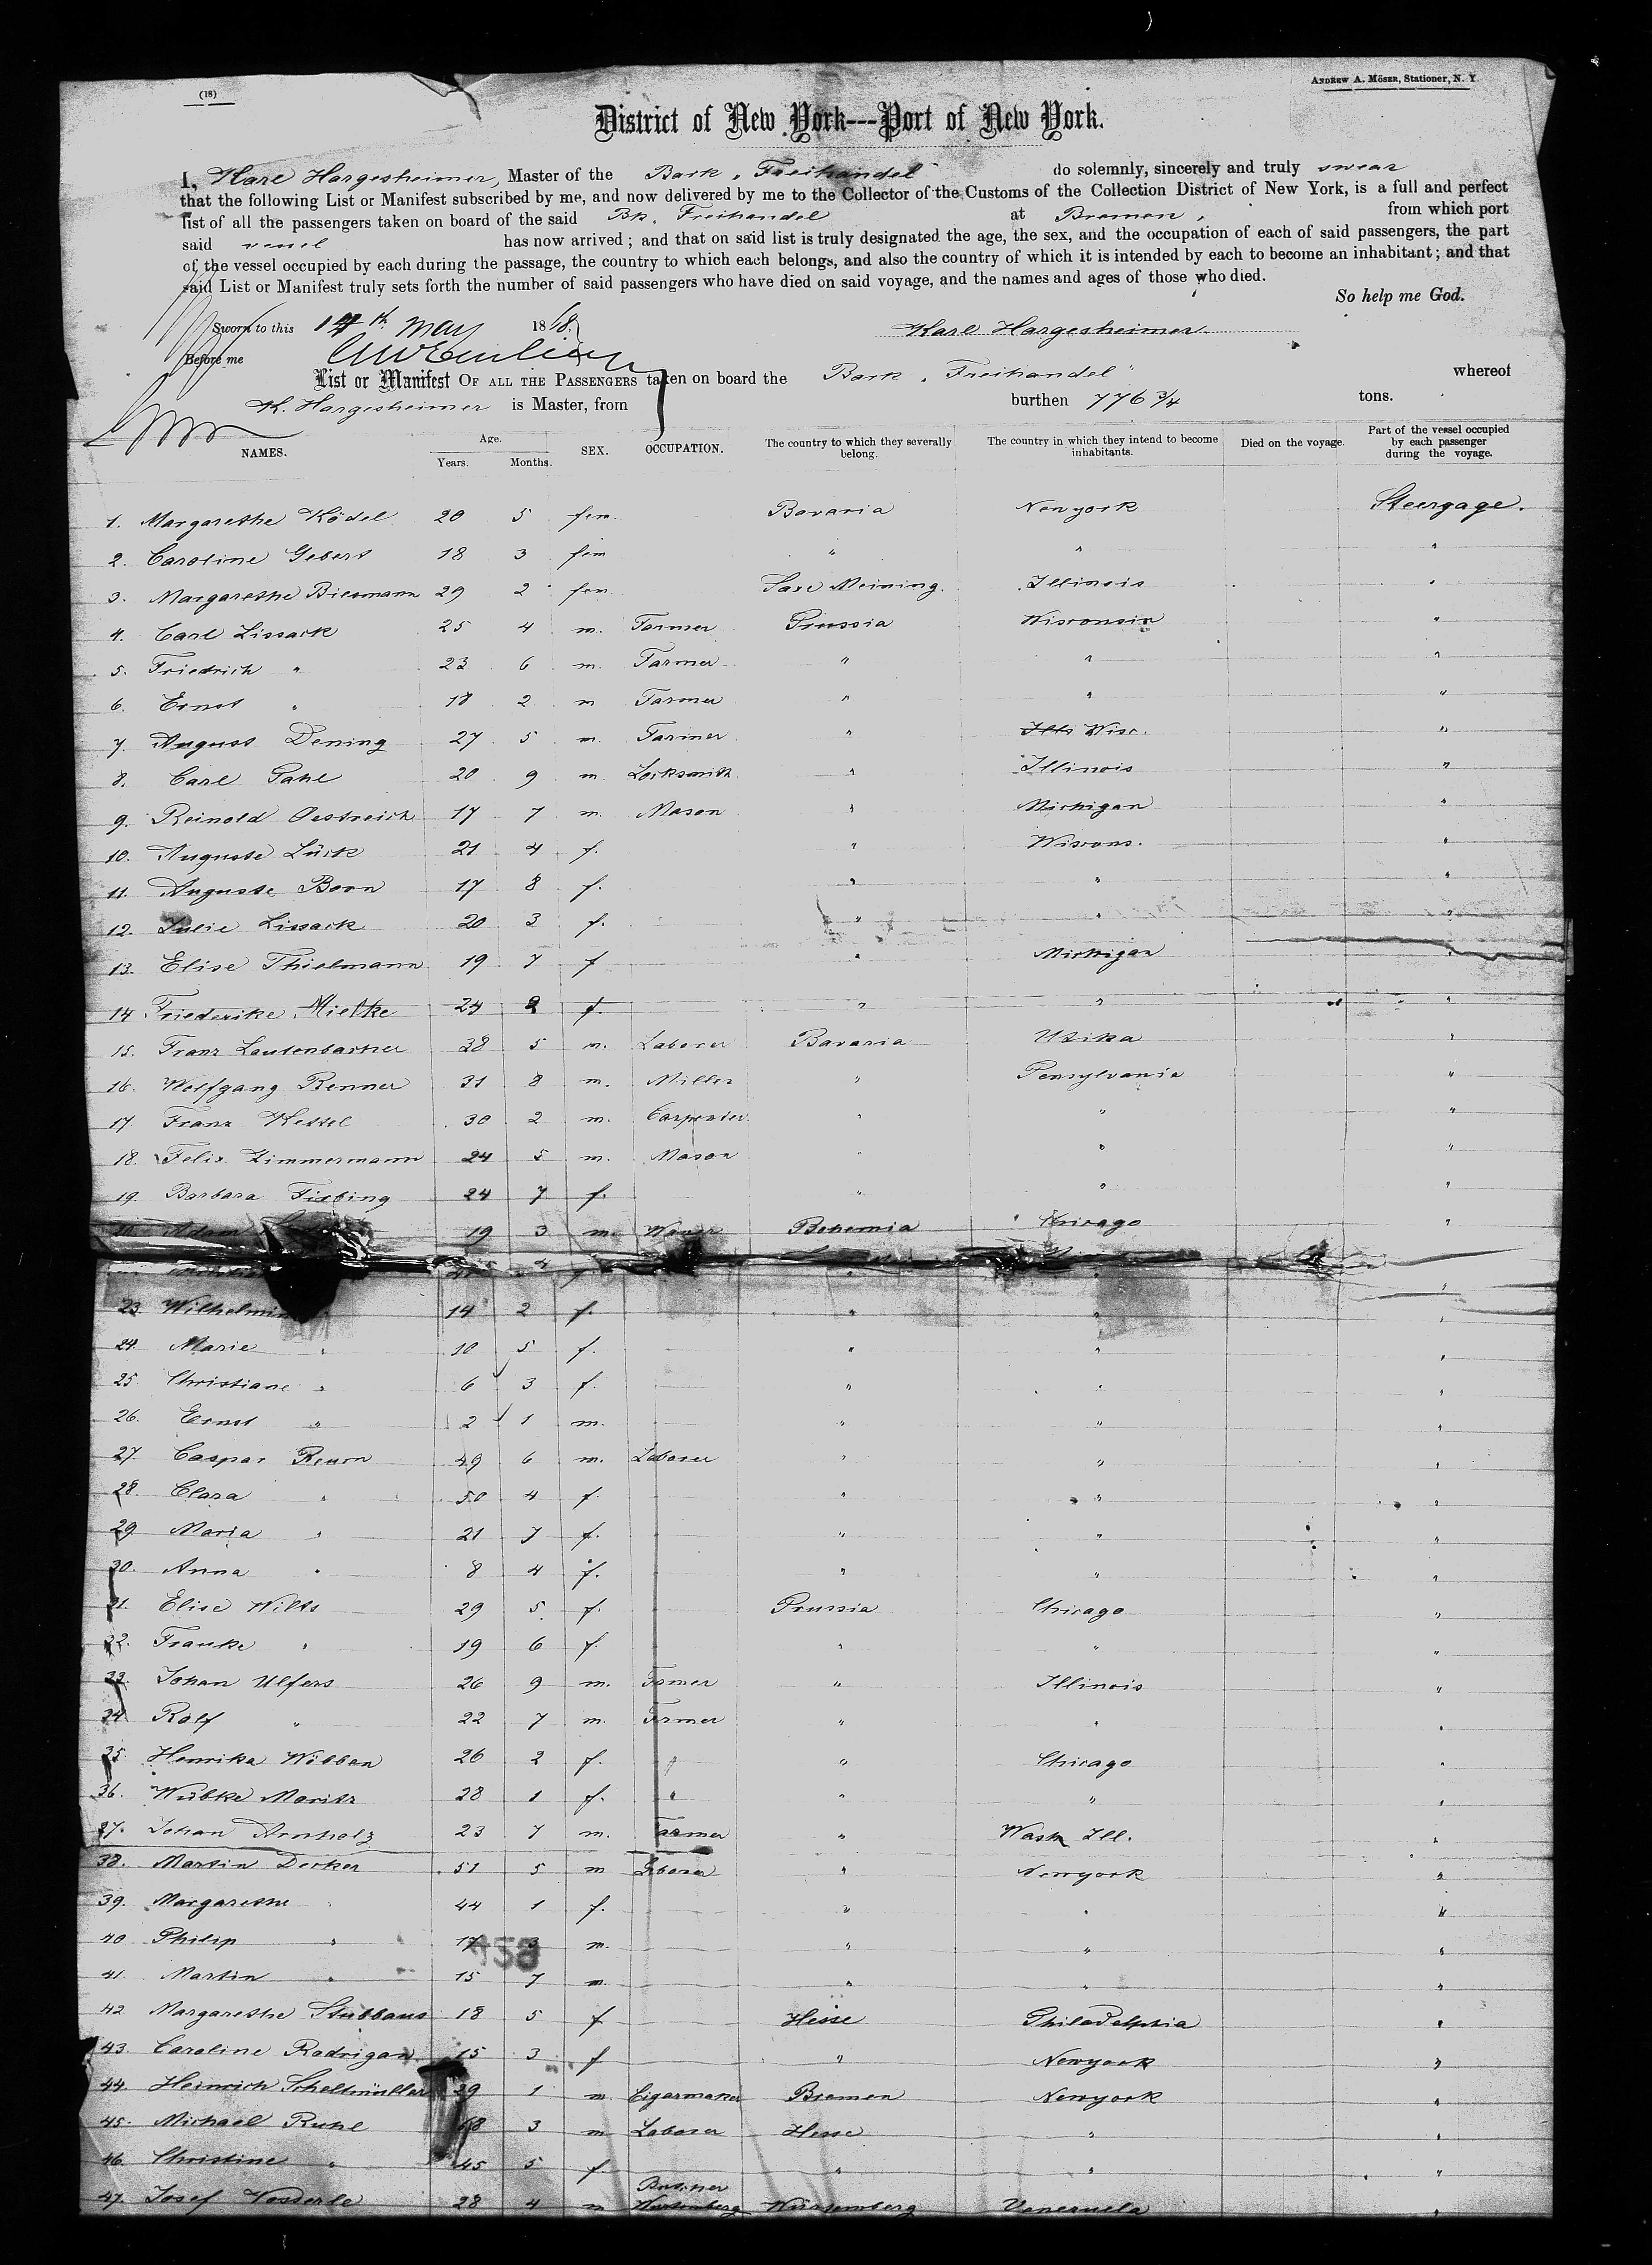 (18)
ANDREW A. MÖSER, Stationer, N. Y.
District of New York---Port of New York.
I, Karl Hargesheimer, Master of the Bark "Freihandel" do solemnly, sincerely and truly swear
that the following List or Manifest subscribed by me, and now delivered by me to the Collector of the Customs of the Collection District of New York, is a full and perfect
list of all the passengers taken on board of the said Bk. Freihandel at Bremen, from which port
said vessel has now arrived; and that on said list is truly designated the age, the sex, and the occupation of each of said passengers, the part
of the vessel occupied by each during the passage, the country to which each belongs, and also the country of which it is intended by each to become an inhabitant; and that
said List or Manifest truly sets forth the number of said passengers who have died on said voyage, and the names and ages of those who died.
So help me God.
Sworn to this 14th May 1868 Karl Hargesheimer
Before me
List or Manifest OF ALL THE PASSENGERS taken on board the Bark "Freihandel" whereof
K. Hargesheimer is Master, from burthen 776 3/4 tons.
NAMES. Age. Years. Months. SEX. OCCUPATION. The country to which they severally belong. The country in which they intend to become inhabitants. Died on the voyage. Part of the vessel occupied by each passenger during the voyage.
1. Margarethe Ködel 20 5 fem. Bavaria New york Steergage.
2. Caroline Gebert 18 3 fem " " "
3. Margarethe Biesmann 29 2 fem Saxe Meining. Illinois "
4. Carl Lissack 25 4 m. Farmer Prussia Wisconsin "
5. Friedrich " 23 6 m. Farmer " " "
6. Ernst " 18 2 m Farmer " " "
7. August Dening 27 5 m. Farmer " Ills Wisc. "
8. Carl Pahl 20 9 m. Locksmith " Illinois "
9. Reinold Oestreich 17 7 m. Mason " Michigan "
10. Auguste Lück 21 4 f. " Wiscons. "
11. Auguste Born 17 8 f. " " "
12. Julie Lissack 20 3 f. " " "
13. Elise Thielmann 19 7 f " Michigan "
14 Friederike Mielke 24 2 f. " " "
15. Franz Lautenbacher 38 5 m. Laborer Bavaria Utika "
16. Wolfgang Renner 31 8 m. Miller " Pensylvania "
17. Franz Kessel 30 2 m. Carpenter " " "
18. Felix Zimmermann 24 5 m. Mason " " "
19. Barbara Fiebing 24 7 f. " " "
Adam 19 3 m. Bohemia Chicago "
4 f. " " "
23. Wilhelmine 14 2 f. " " "
24. Marie " 10 5 f. " " "
25. Christiane " 6 3 f. " " "
26. Ernst " 2 1 m. " " "
27. Caspar 49 6 m. Laborer " " "
28. Clara " 50 4 f. " " "
29. Maria " 21 7 f. " " "
30. Anna " 8 4 f. " " "
31. Elise Wilts 29 5 f. Prussia Chicago "
32. Frauke " 19 6 f. " " "
33. Johan Ulfers 26 9 m. Farmer " Illinois "
34 Rolf " 22 7 m. Farmer " " "
35. Henrika Wibben 26 2 f. " " Chicago "
36. Wübke Moritz 28 1 f. " " " "
37. Johan Arnholz 23 7 m. Farmer " Wash Ill. "
38. Martin Decker 51 5 m Laborer " Newyork "
39. Margarethe " 44 1 f. " " "
40 Philip " 17 3 m. " " "
428
41. Martin " 15 7 m. " " "
42 Margarethe Stubbaus 18 5 f Hesse Philadelphia "
43. Caroline Rodrigan 15 3 f " Newyork "
44. Heinrich Schellmüller 29 1 m Cigarmaker Bremen Newyork "
45. Michael Ruhl 68 3 m Laborer Hesse " "
46. Christine " 45 5 f " " "
47. Josef 28 4 m Würtemberg Venezuela "